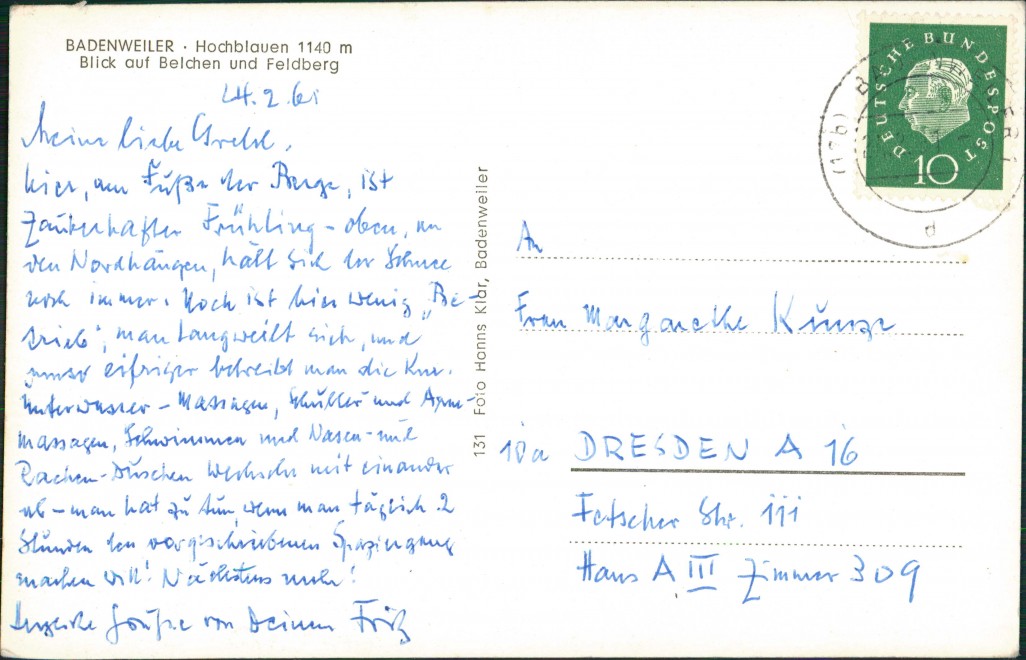 BADENWEILER · Hochblauen 1140 m
Blick auf Belchen und Feldberg
24.2.61
Meine liebe Gretel,
hier, am Fuße der Berge, ist
zauberhafter Frühling – oben, an
den Nordhängen, hält sich der Schnee
noch immer. Noch ist hier wenig „Be-
trieb", man langweilt sich, und
umso eifriger betreibt man die Kur.
Unterwasser – Massagen, Schulter- und Arm-
massagen, Schwimmen und Nasen- und
Rachen-Duschen wechseln mit einander
ab – man hat zu tun, wenn man täglich 2
Stunden den vorgeschriebenen Spaziergang
machen will! Nächstens mehr!
Grüße von Deinem Fritz
131 Foto Hanns Klar, Badenweiler
DEUTSCHE BUNDESPOST
10
(17b)
d
An
Frau Margarethe Kunze
10a DRESDEN A 16
Fetscher Str. 111
Haus A III Zimmer 309